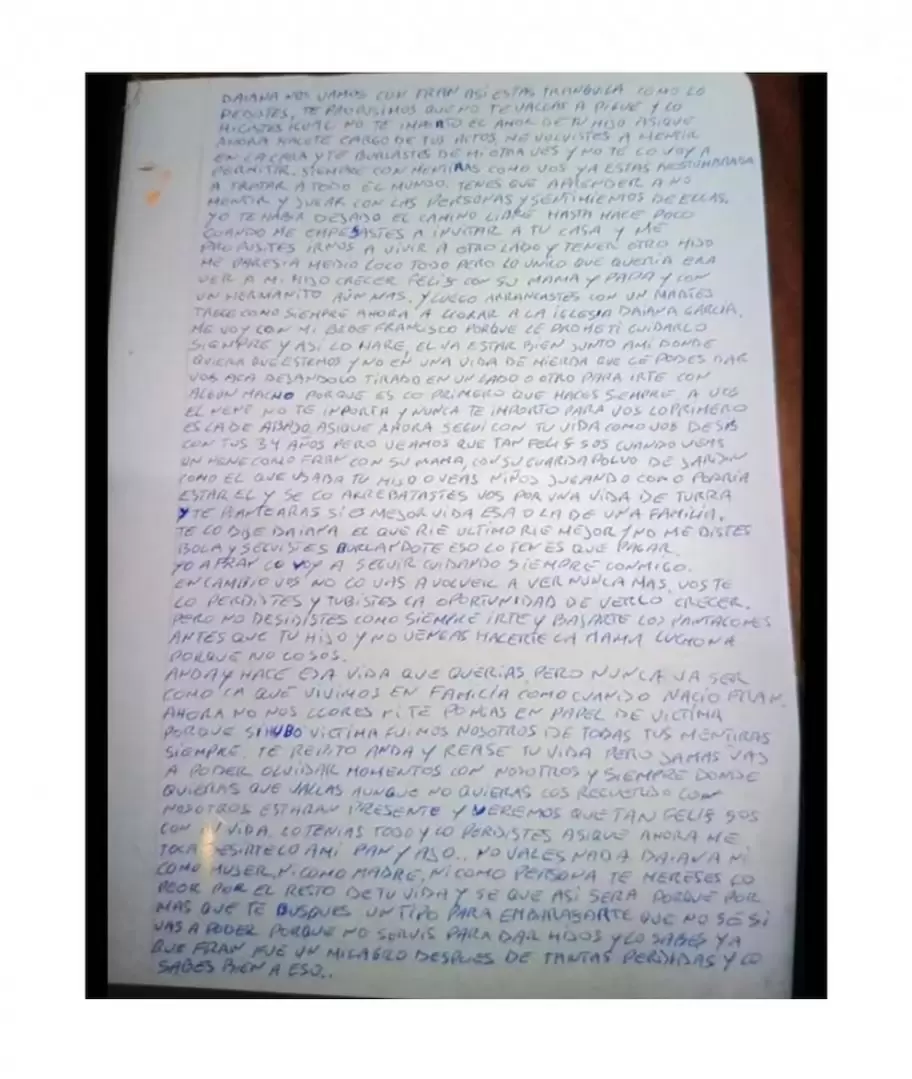 DAIANA NOS VAMOS CON FRAN ASI ESTAS TRANQUILA COMO LO
PEDISTES, TE PROPUSIMOS QUE NO TE VALLAS A PIGUE Y LO
HICISTES IGUAL NO TE INPORTO EL AMOR DE TU HIJO ASIQUE
AHORA HACETE CARGO DE TUS ACTOS, ME VOLVISTES A MENTIR
EN LA CARA Y TE BURLASTES DE MI OTRA VES Y NO TE LO VOY A
PERMITIR. SIEMPRE CON MENTIRAS COMO VOS YA ESTAS ACOSTUMBRADA
A TRATAR A TODO EL MUNDO. TENES QUE APRENDER A NO
MENTIR Y JUGAR CON LAS PERSONAS Y SENTIMIENTOS DE ELLAS.
YO TE HABIA DEJADO EL CAMINO LIBRE HASTA HACE POCO
CUANDO ME EMPESASTES A INVITAR A TU CASA Y ME
PROPUSITES IRNOS A VIVIR A OTRO LADO Y TENER OTRO HIJO
ME PARESIA MEDIO LOCO TODO PERO LO UNICO QUE QUERIA ERA
VER A MI HIJO CRECER FELIS CON SU MAMA Y PAPA Y CON
UN HERMANITO AUN MAS. Y LUEGO ARRANCASTES CON UN MARTES
TRECE COMO SIEMPRE AHORA A LLORAR A LA IGLESIA DAIANA GARCIA.
ME VOY CON MI BEBE FRANCISCO PORQUE LE PROMETI CUIDARLO
SIEMPRE Y ASI LO HARE, EL VA ESTAR BIEN JUNTO AMI DONDE
QUIERA QUE ESTEMOS Y NO EN UNA VIDA DE MIERDA QUE LE PODES DAR
VOS ACA DEJANDOLO TIRADO EN UN LADO O OTRO PARA IRTE CON
ALGUN MACHO PORQUE ES LO PRIMERO QUE HACES SIEMPRE. A VOS
EL NENE NO TE INPORTA Y NUNCA TE IMPORTO PARA VOS LO PRIMERO
ES LA DE ABAJO, ASIQUE AHORA SEGUI CON TU VIDA COMO VOS DESIS
CON TUS 34 AÑOS PERO VEAMOS QUE TAN FELIS SOS CUANDO VEAS
UN NENE COMO FRAN CON SU MAMA, CON SU GUARDAPOLVO DE JARDIN
COMO EL QUE USABA TU HIJO O VEAS NIÑOS JUGANDO COMO PODRIA
ESTAR EL Y SE LO ARREBATASTES VOS POR UNA VIDA DE TURRA
Y TE PLANTEARAS SI ES MEJOR VIDA ESA O LA DE UNA FAMILIA.
TE LO DIJE DAIANA EL QUE RIE ULTIMO RIE MEJOR Y NO ME DISTES
BOLA Y SEGUISTES BURLANDOTE ESO LO TENES QUE PAGAR.
YO A FRAN LO VOY A SEGUIR CUIDANDO SIEMPRE CONMIGO.
EN CAMBIO VOS NO LO VAS A VOLVER A VER NUNCA MAS, VOS TE
LO PERDISTES Y TUBISTES LA OPORTUNIDAD DE VERLO CRECER.
PERO NO DESIDISTES COMO SIEMPRE IRTE Y BAJARTE LOS PANTALONES
ANTES QUE TU HIJO Y NO VENGAS HACERTE LA MAMA LUCHONA
PORQUE NO LO SOS.
ANDA Y HACE ESA VIDA QUE QUERIAS, PERO NUNCA VA SER
COMO LA QUE VIVIMOS EN FAMILIA COMO CUANDO NACIO FRAN.
AHORA NO NOS LLORES NI TE PONGAS EN PAPEL DE VICTIMA
PORQUE SI HUBO VICTIMA FUIMOS NOSOTROS DE TODAS TUS MENTIRAS
SIEMPRE. TE REPITO ANDA Y REASE TU VIDA PERO JAMAS VAS
A PODER OLVIDAR MOMENTOS CON NOSOTROS Y SIEMPRE DONDE
QUIERAS QUE VALLAS AUNQUE NO QUIERAS LOS RECUERDO CON
NOSOTROS ESTARAN PRESENTE Y VEREMOS QUE TAN FELIS SOS
CON TU VIDA. LO TENIAS TODO Y LO PERDISTES ASIQUE AHORA ME
TOCA DESIRTELO AMI PAN Y AJO.. NO VALES NADA DAIANA NI
COMO MUJER, NI COMO MADRE, NI COMO PERSONA TE MERESES LO
PEOR POR EL RESTO DE TU VIDA Y SE QUE ASI SERA PORQUE POR
MAS QUE TE BUSQUES UN TIPO PARA EMBARASARTE QUE NO SE SI
VAS A PODER PORQUE NO SERVIS PARA DAR HIJOS Y LO SABES YA
QUE FRAN FUE UN MILAGRO DESPUES DE TANTAS PERDIDAS Y LO
SABES BIEN A ESO..